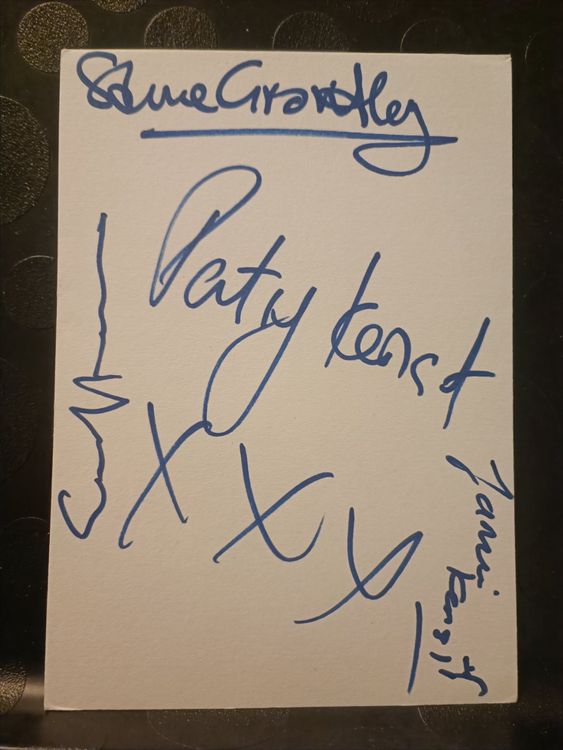 Steve Grantley
Patsy Kensit
X X X
Jamie
Kensit